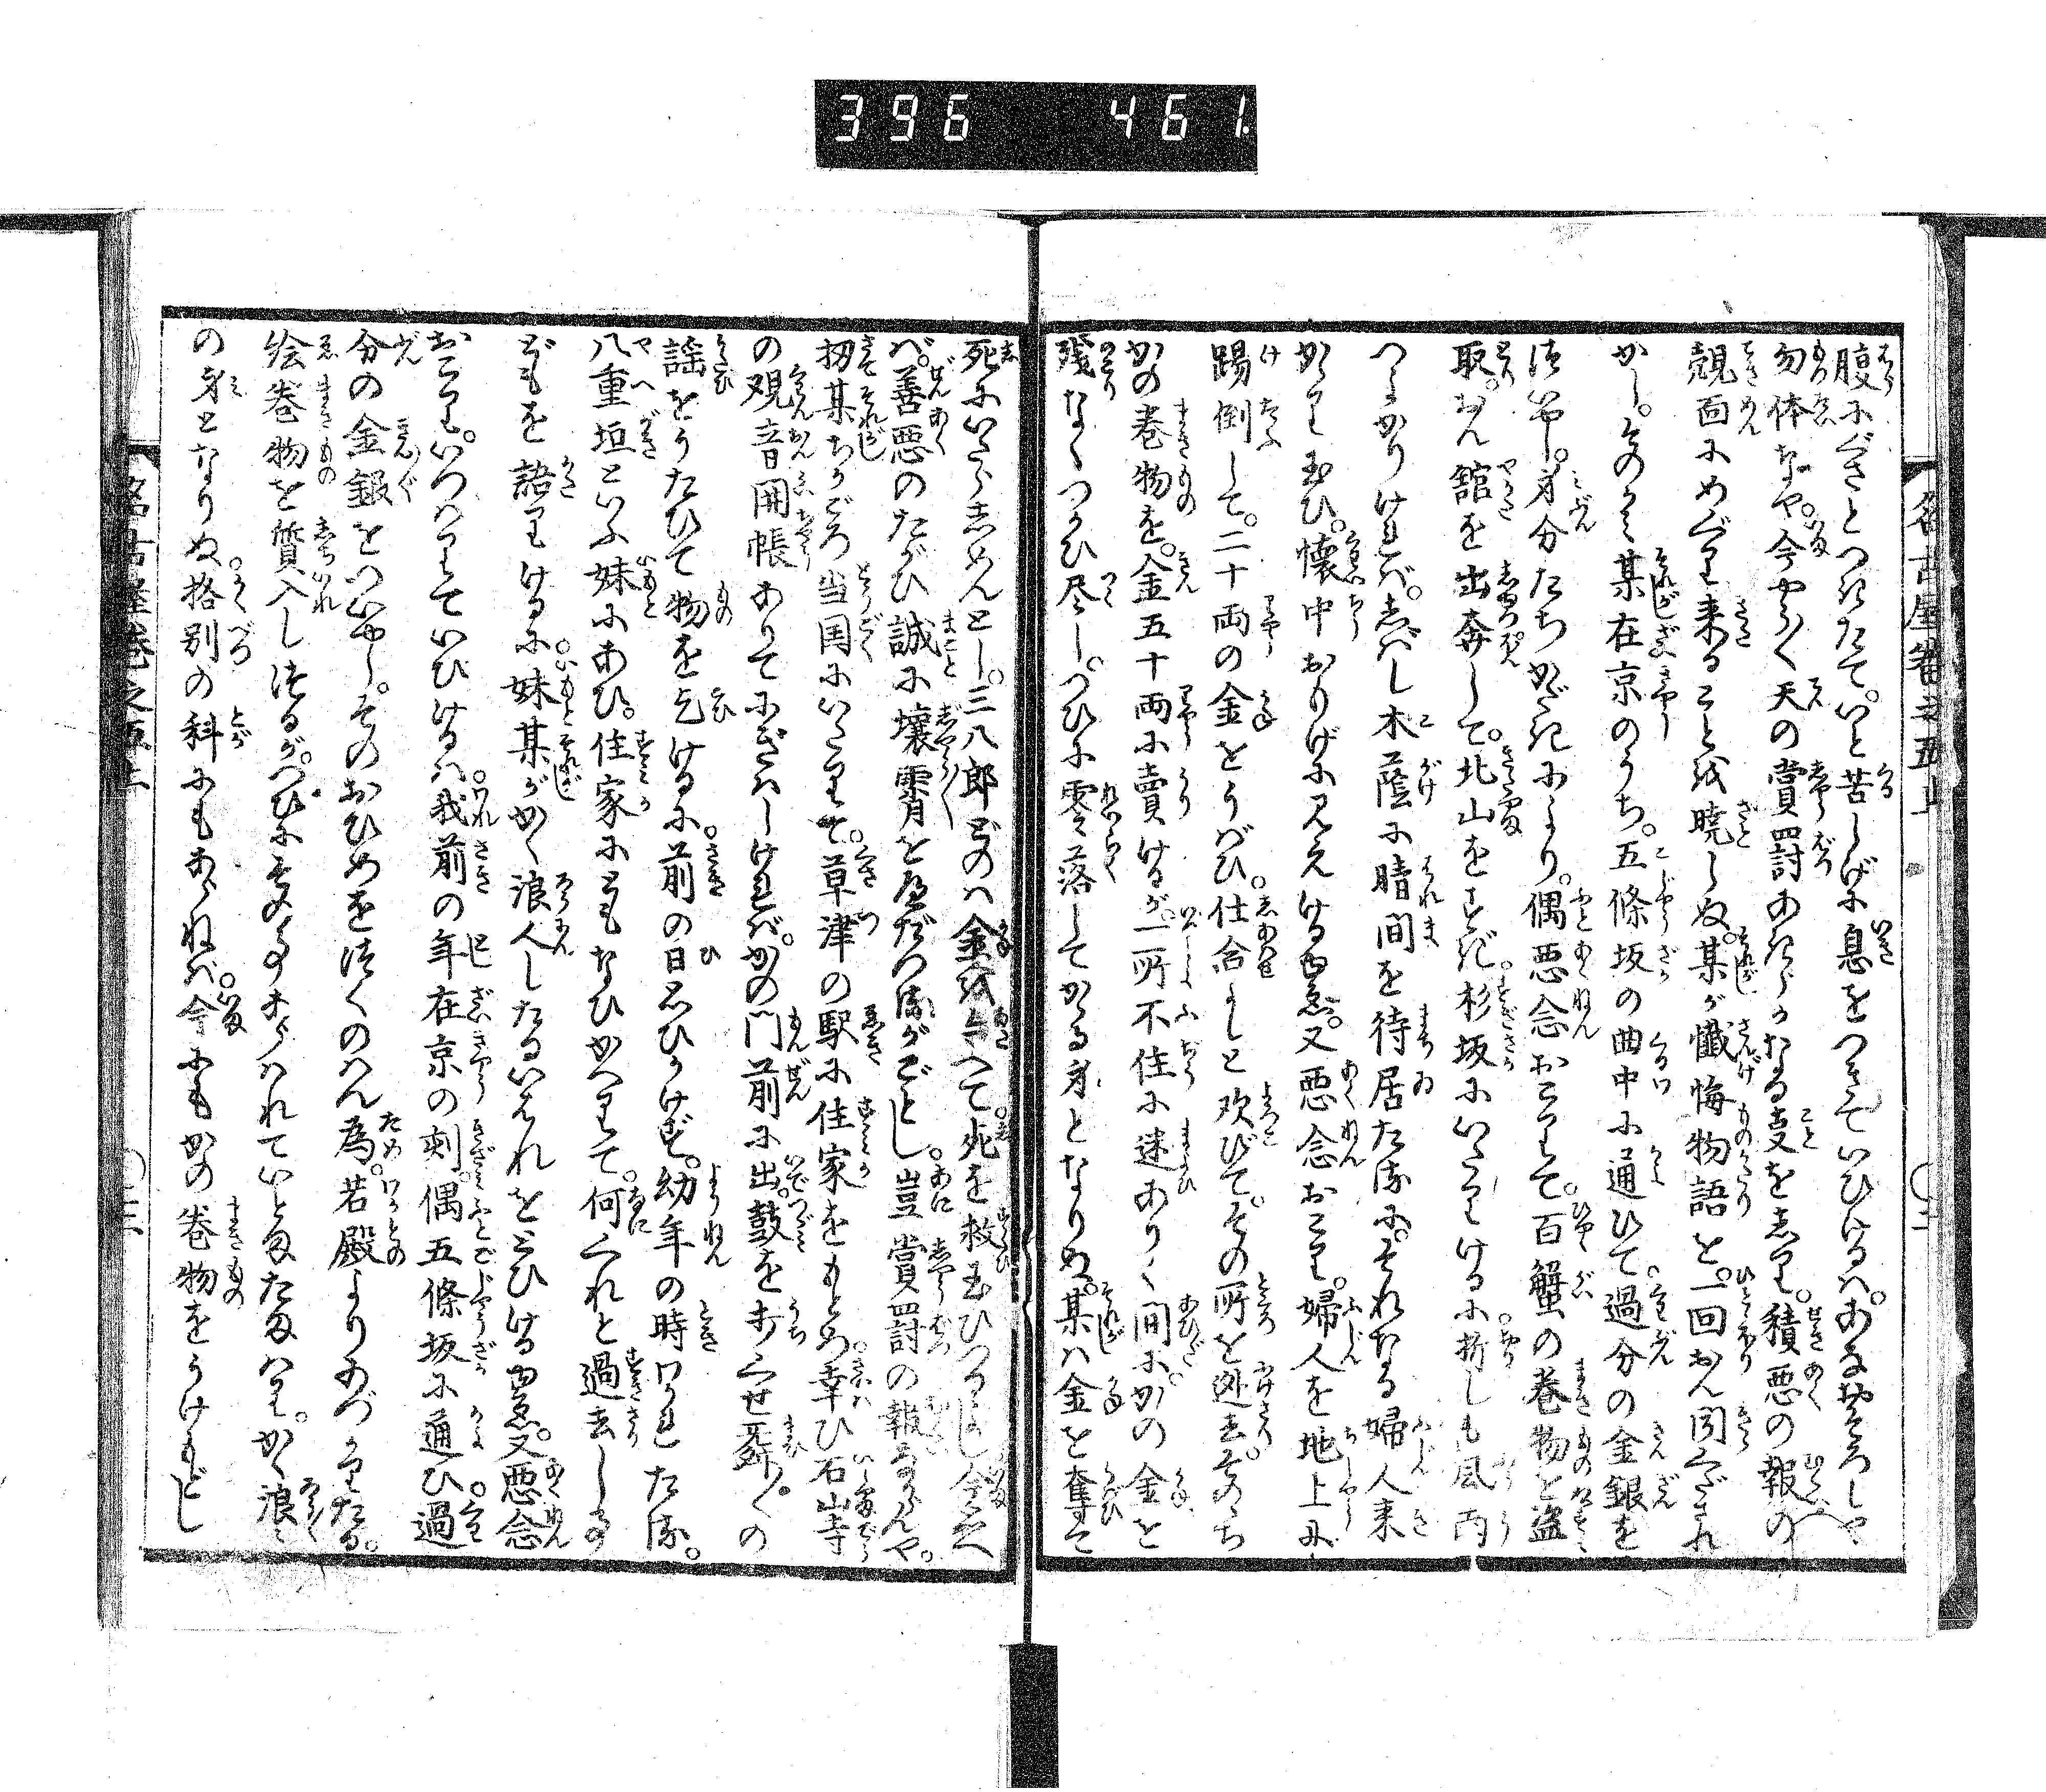 396 461
腹にぐさとつきたて。いと苦しげに息をつきていひけるは。あなおそろしや
勿体なや。今やう〳〵天の賞罰あきらかなる事をしれり。積悪の報の
覿面にめぐり来ることを暁しぬ。某が懺悔物語を。一回おん聞くだされ
かし。そのかみ某在京のうち。五條坂の曲中に通ひて。過分の金銀を
つひやし。身分たちがたきにより。偶悪念おこりて。百蟹の巻物を盗
取。おん館を出奔して。北山をすぎ。杉坂にいたりけるに。折しも風雨
つよかりければ。しばし木蔭に晴間を待居たるに。それなる婦人来
かゝり玉ひ。懐中おりげに見えけるゆゑ。又悪念おこり。婦人を地上に
踢倒して。二十両の金をうばひ。仕合よしと歓びて。その所を逃去。そのゝち
かの巻物を。金五十両に賣けるが。一所不住に迷ありく間に。かの金を
残なくつかひ尽し。つひに零落してかゝる身となりぬ。某は金を奪て
死にいたらしめんとし。三八郎どのは金を与へて。死を救玉ひつるよし。今思へ
ば。善悪のたがひ誠に壌霄をへだつるがごとし。豈賞罰の報なからんや。
扨某ちかごろ当国にいたりて。草津の駅に住家をもとめ。幸ひ石山寺
の観音開帳ありてにぎはしければ。かの門前に出。鼓を打うせ舞〳〵の
謡をうたひて物を乞けるに。前の日思ひかけず。幼年の時わかれたる。
八重垣といふ妹にあひ。住家にともなひかへりて。何くれと過去し事
どもを語りけるに。妹某がかく浪人したるいはれをとひけるゆゑ。又悪念
おこり。いつはりていひけるは。我前の年在京の刻。偶五條坂に通ひ過
分の金銀をつひやし。そのおひめをつくのはん為。若殿よりあづかりたる。
絵巻物を質入しつるが。つひにその事あらはれていとまたまはり。かく浪〻
の身となりぬ。格別の科にもあらねば。今にもかの巻物をうけもどし